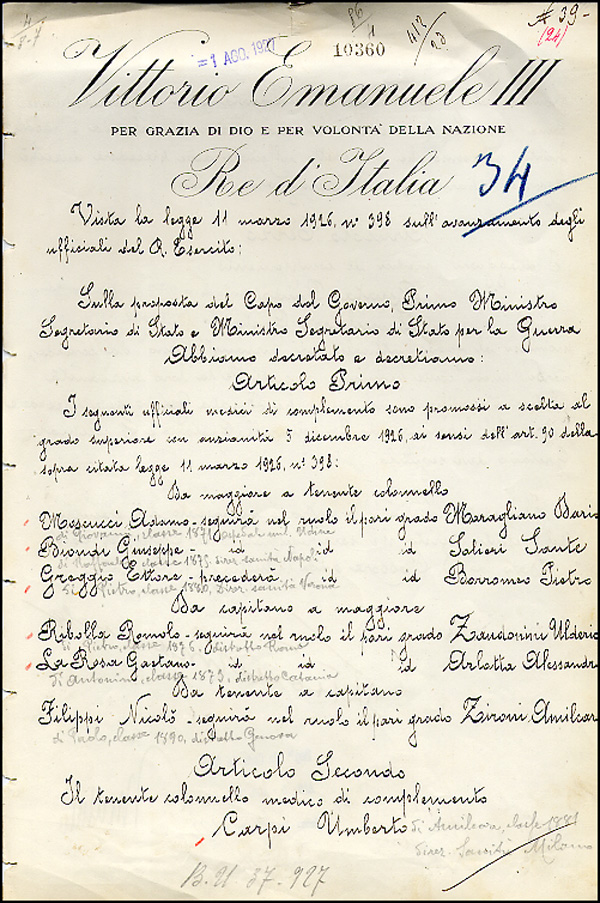 = 1 AGO. 1927
10360
412
# 39-
(24)
Vittorio Emanuele III
PER GRAZIA DI DIO E PER VOLONTA' DELLA NAZIONE
Re d'Italia
34
Vista la legge 11 marzo 1926, n° 398 sull'avanzamento degli
ufficiali del R. Esercito;
Sulla proposta del Capo del Governo, Primo Ministro
Segretario di Stato e Ministro Segretario di Stato per la Guerra
Abbiamo decretato e decretiamo:
Articolo Primo
I seguenti ufficiali medici di complemento sono promossi a scelta al
grado superiore con anzianità 5 dicembre 1926, ai sensi dell'art. 90 della
sopra citata legge 11 marzo 1926, n° 398:
Da maggiore a tenente colonnello
Moscucci Adamo - seguirà nel ruolo il pari grado Maragliano Dario
di Giovanni, classe 1871, ospedale mil. Udine
Biondi Giuseppe - id id id Salieri Sante
di Raffaele, classe 1875, direz. sanità Napoli
Greggio Ettore - precederà id id Borromeo Pietro
di Pietro, classe 1880, Direz. sanità Verona
Da capitano a maggiore
Ribolla Romolo - seguirà nel ruolo il pari grado Zandonini Ulderico
di Pietro, classe 1876, distretto Roma
La Rosa Gaetano - id id id Arlotta Alessandro
di Antonino, classe 1873, distretto Catania
Da tenente a capitano
Filippi Nicolò - seguirà nel ruolo il pari grado Zironi Amilcar
di Paolo, classe 1890, distretto Genova
Articolo Secondo
Il tenente colonnello medico di complemento
Carpi Umberto di Amilcare, classe 1881
direz. Sanità Milano
B. U 37-927